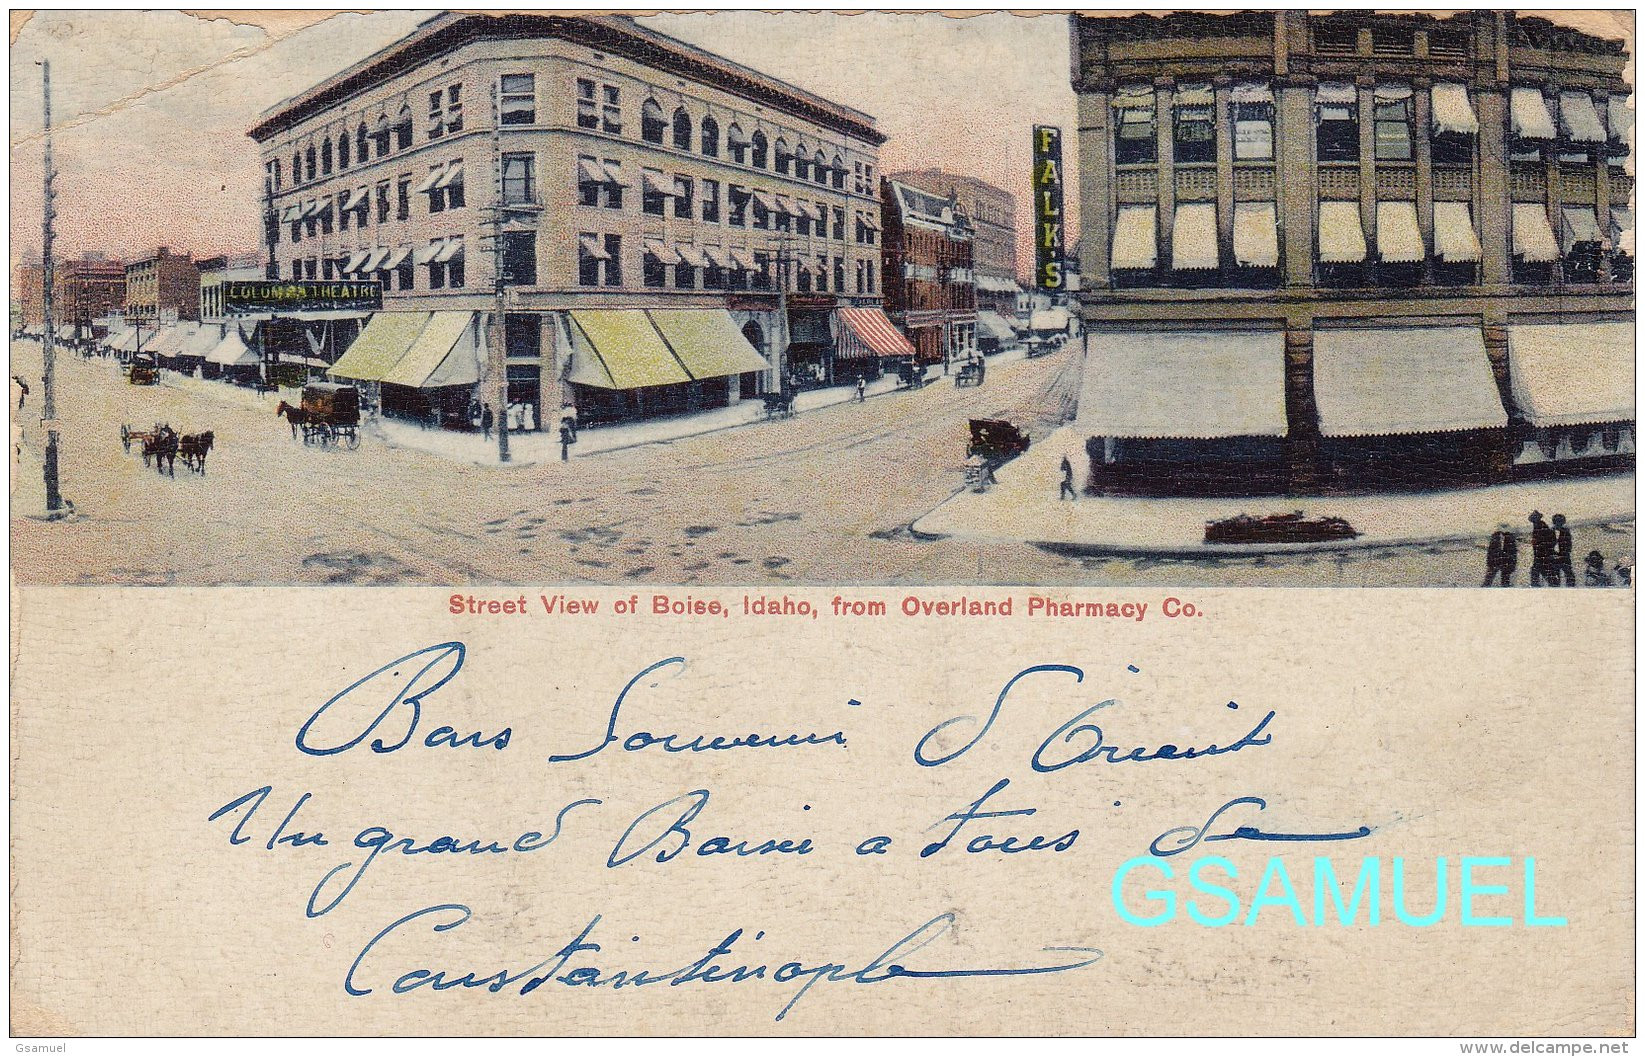 COLUMBIA THEATRE
FALK'S
Street View of Boise, Idaho, from Overland Pharmacy Co.
Bons Souvenir d'Orient
Un grand Baiser a tous de
Constantinople
GSAMUEL
Gsamuel
www.delcampe.net